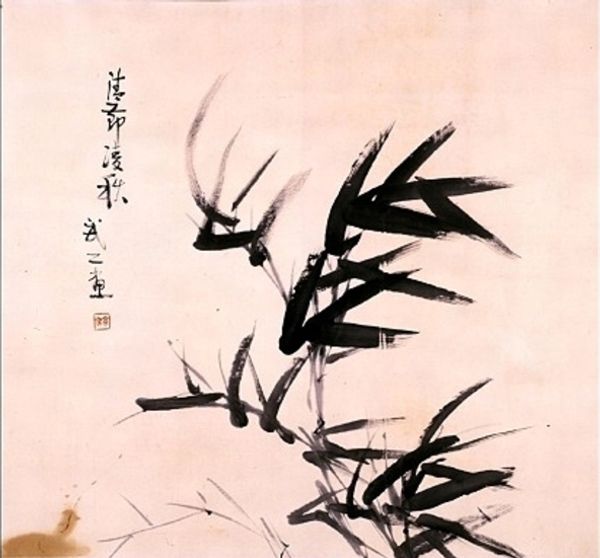 清節凌秋
武二畫